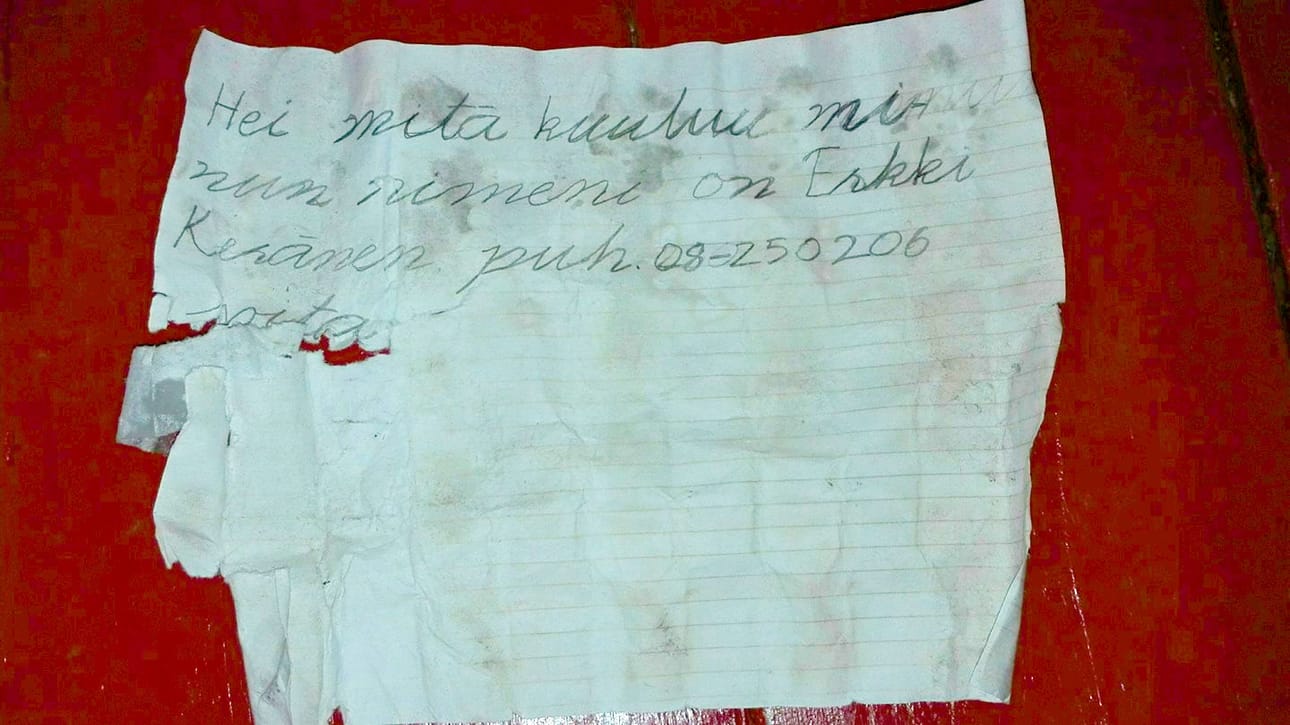 Hei mitä kuuluu mi
nun nimeni on Erkki
Keränen puh. 08-250206
mitä